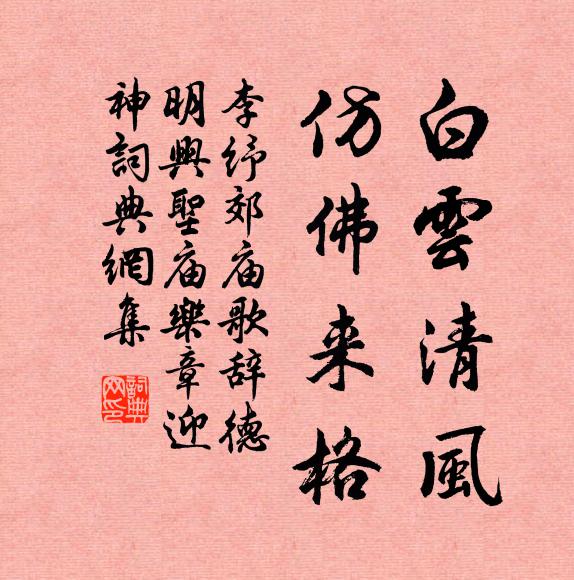 白雲清風
仿佛来格
李纾郊庙歌辞德
明興聖庙樂章迎
神詞典網集
詞典网印